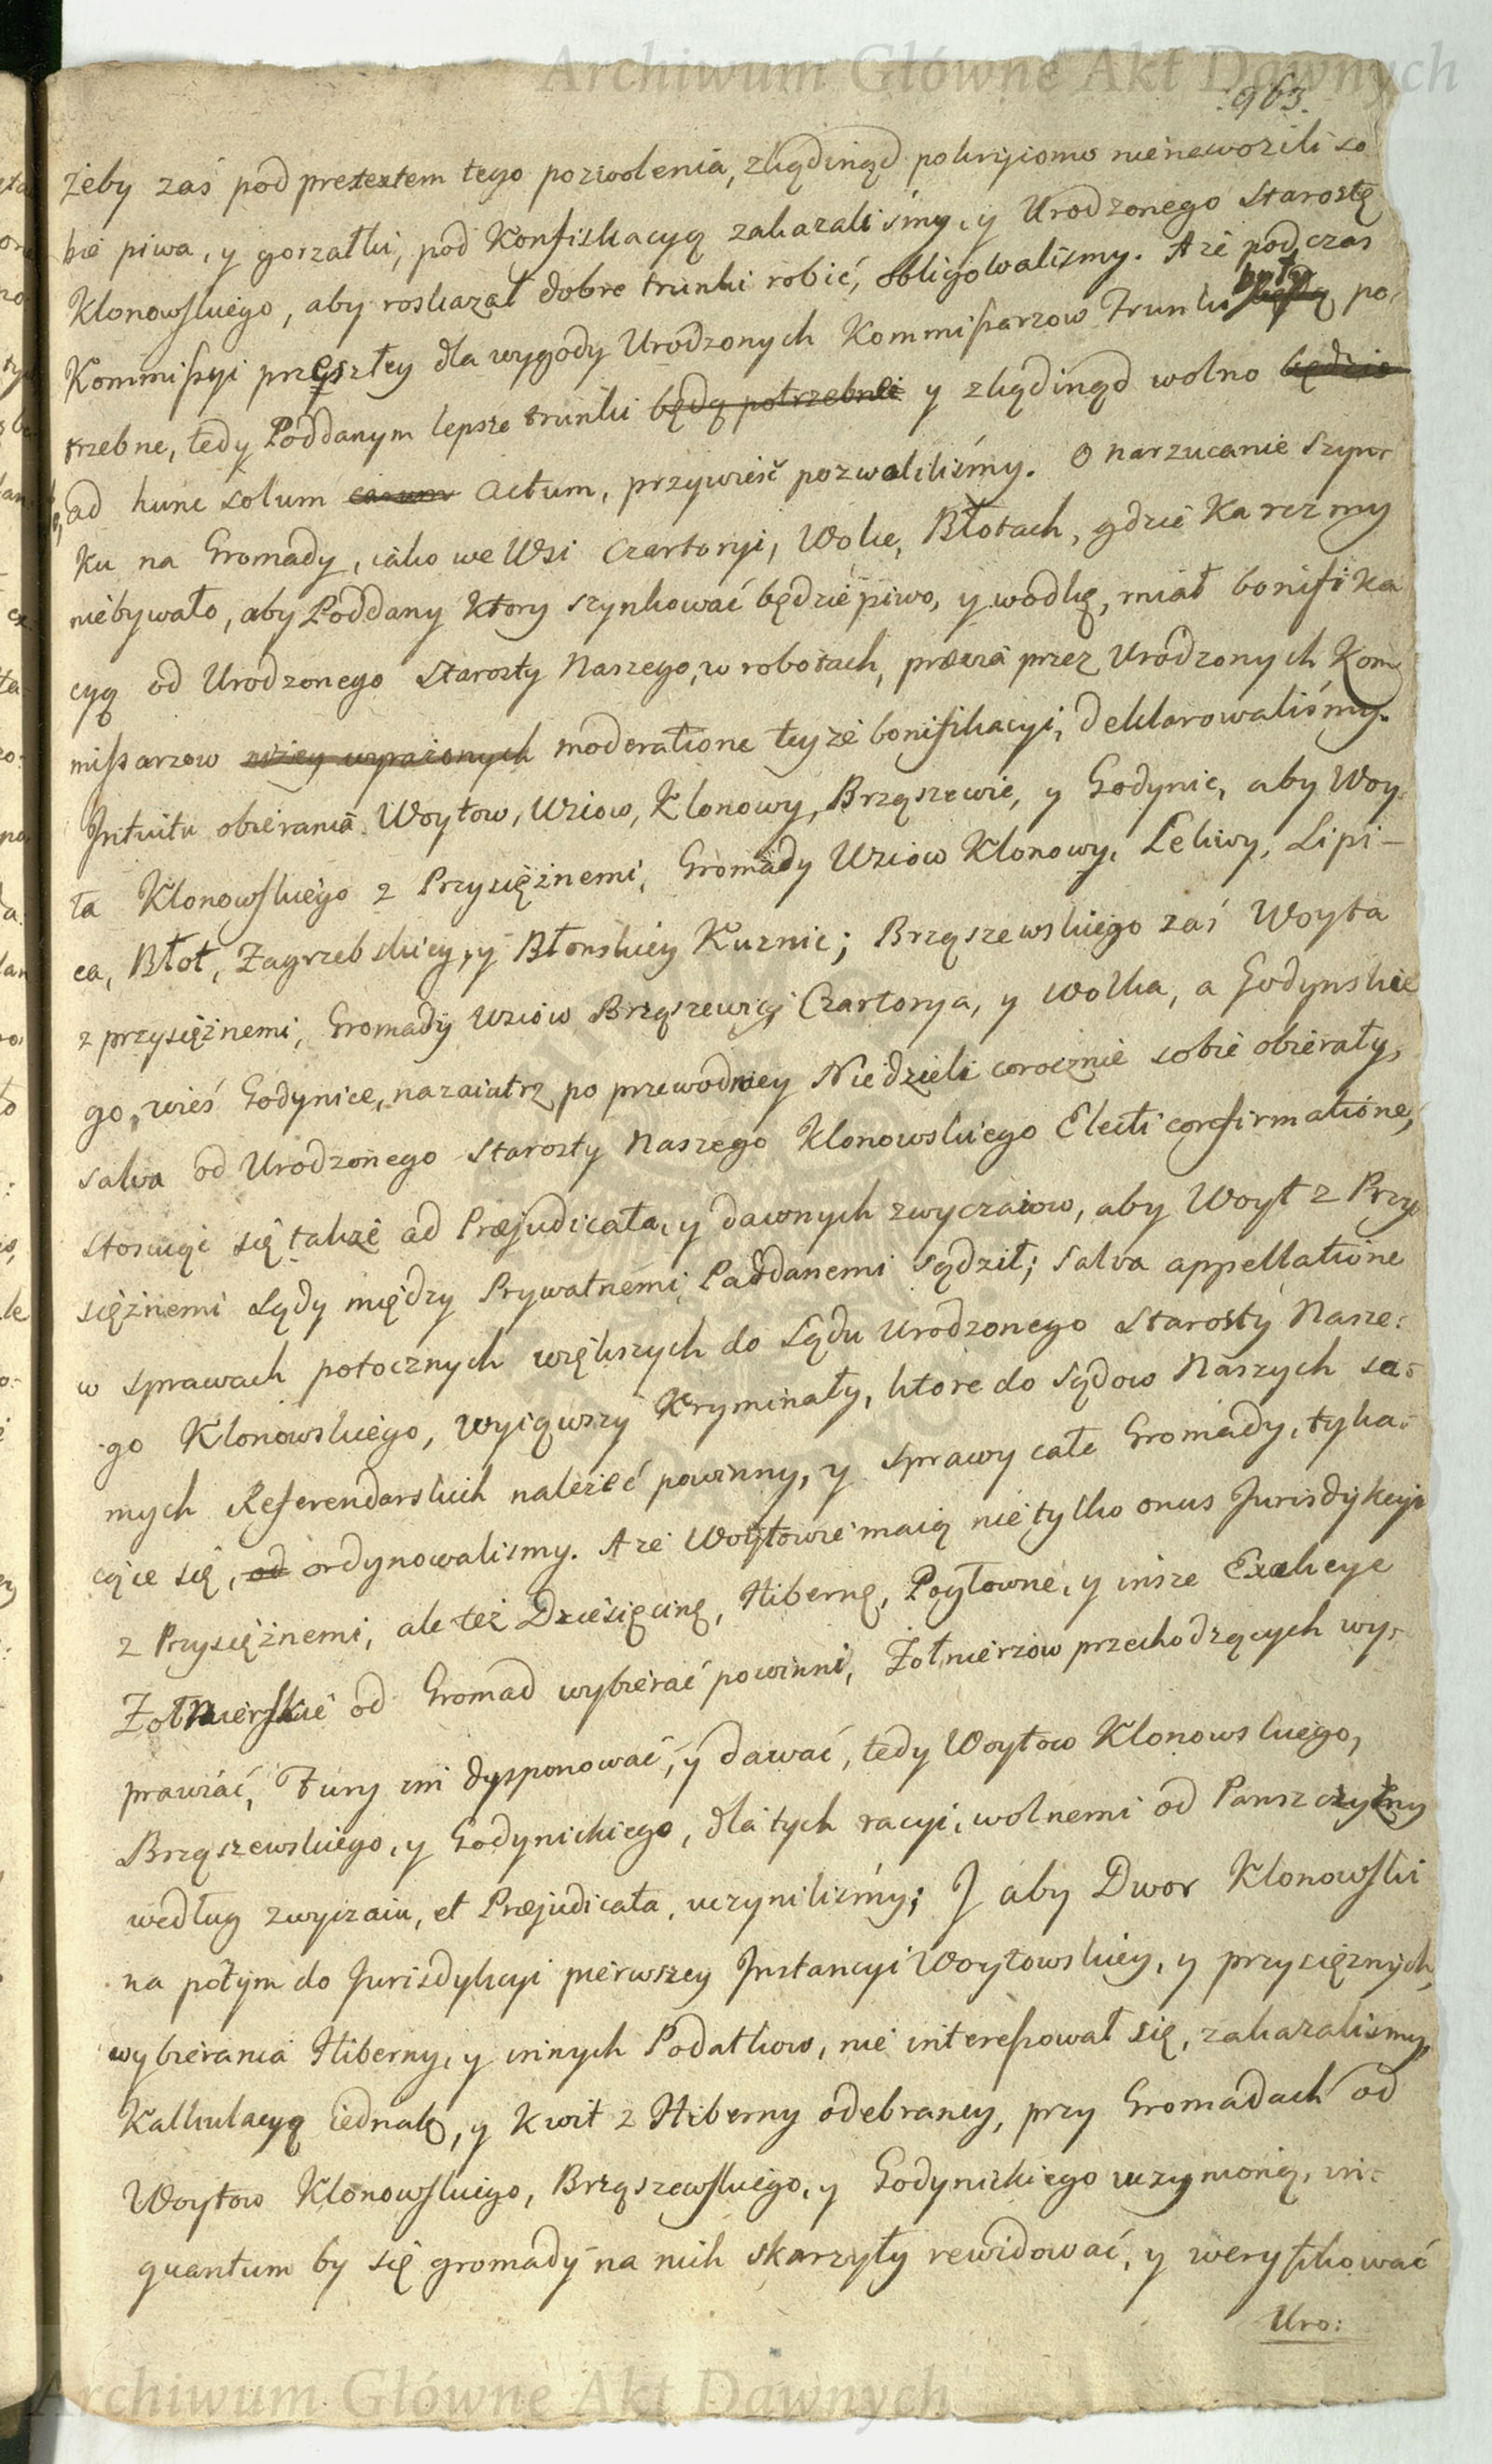 Archiwum Główne Akt Dawnych
963.
żeby zaś pod pretextem tego pozwolenia, zkądinąd pokryiomo nienawozili so
bie piwa, y gorzałki, pod Konfiskacyą zakazaliśmy, y Urodzonego Starostę
Klonowskiego, aby roskazał dobre trunki robić, obligowaliśmy. A że podczas
Kommissyi przeszłey dla wygody Urodzonych Kommissarzow Trunki były po,
trzebne, tedy Poddanym lepsze trunki będą potrzebnei y zkądinąd wolno będzie
ad hunc solum casum Actum, przywieść pozwoliliśmy. O narzucanie Szyn-
ku na Gromady, iako we Wsi Czartoryi, Wolce, Błotach, gdzie Karczmy
niebywało, aby Poddany ktory szynkować będzie piwo, y wodkę, miał bonifika
cyą od Urodzonego Starosty Naszego, w robotach, prævia przez Urodzonych Kom
missarzow niżey wyrażonych moderatione teyże bonifikacyi, deklarowaliśmy.
Intuitu obierania Woytow, Wsiow, Klonowy, Brząszewic, y Godynic, aby Woy
ta Klonowskiego z Przysiężnemi, Gromady Wsiow Klonowy, Lekiwy, Lipi-
ca, Błot, Zagrzebskiey, y Błonskiey Kuznic; Brząszewskiego zaś Woyta
z przysiężnemi, Gromady Wsiow Brząszewicj Czartorya, y Wolka, a Godynskie
go, wieś Godynice, nazaiutrz po przewodniey Niedzieli corocznie sobie obierały,
salva od Urodzonego Starosty Naszego Klonowskiego Electi confirmatione,
stosuiąc się także ad Præjudicata, y dawnych zwyczaiow, aby Woyt z Przy
siężnemi Sądy między Prywatnemi Poddanemi sądził; salva appellatione
w sprawach potocznych większych do Sądu Urodzonego Starosty Nasze:
go Klonowskiego, wyiąwszy Kryminały, ktore do Sądow Naszych sa:
mych Referendarskich należeć powinny, y sprawy całe Gromady, tyka:
cące się, od ordynowaliśmy. A że Woytowie maią nie tylko onus Jurisdykcyi
z Przysiężnemi, ale też Dziesięcinę, Hibernę, Pogłowne, y insze Exakcye
Żołnierskie od Gromad wybierać powinni, Żołnierzow przechodzących wy-
prawiać, Fury im dysponować, y dawać, tedy Woytow Klonowskiego,
Brząszewskiego, y Godynickiego, dla tych racyi, wolnemi od Panszczyzny
według zwyczaiu, et Præjudicata, uczyniliśmy; I aby Dwor Klonowski
na potym do Jurisdykcyi pierwszey Instancyi Woytowskiey, y przysiężnych,
wybierania Hiberny, y innych Podatkow, nie interessował się, zakazaliśmy,
Kalkulacyą iednak, y Kwit z Hiberny odebraney, przy Gromadach od
Woytow Klonowskiego, Brząszewskiego, y Godynickiego uczynioną, in-
quantum by się gromady na nich skarzyły rewidować, y weryfikować
Uro:
Archiwum Główne Akt Dawnych